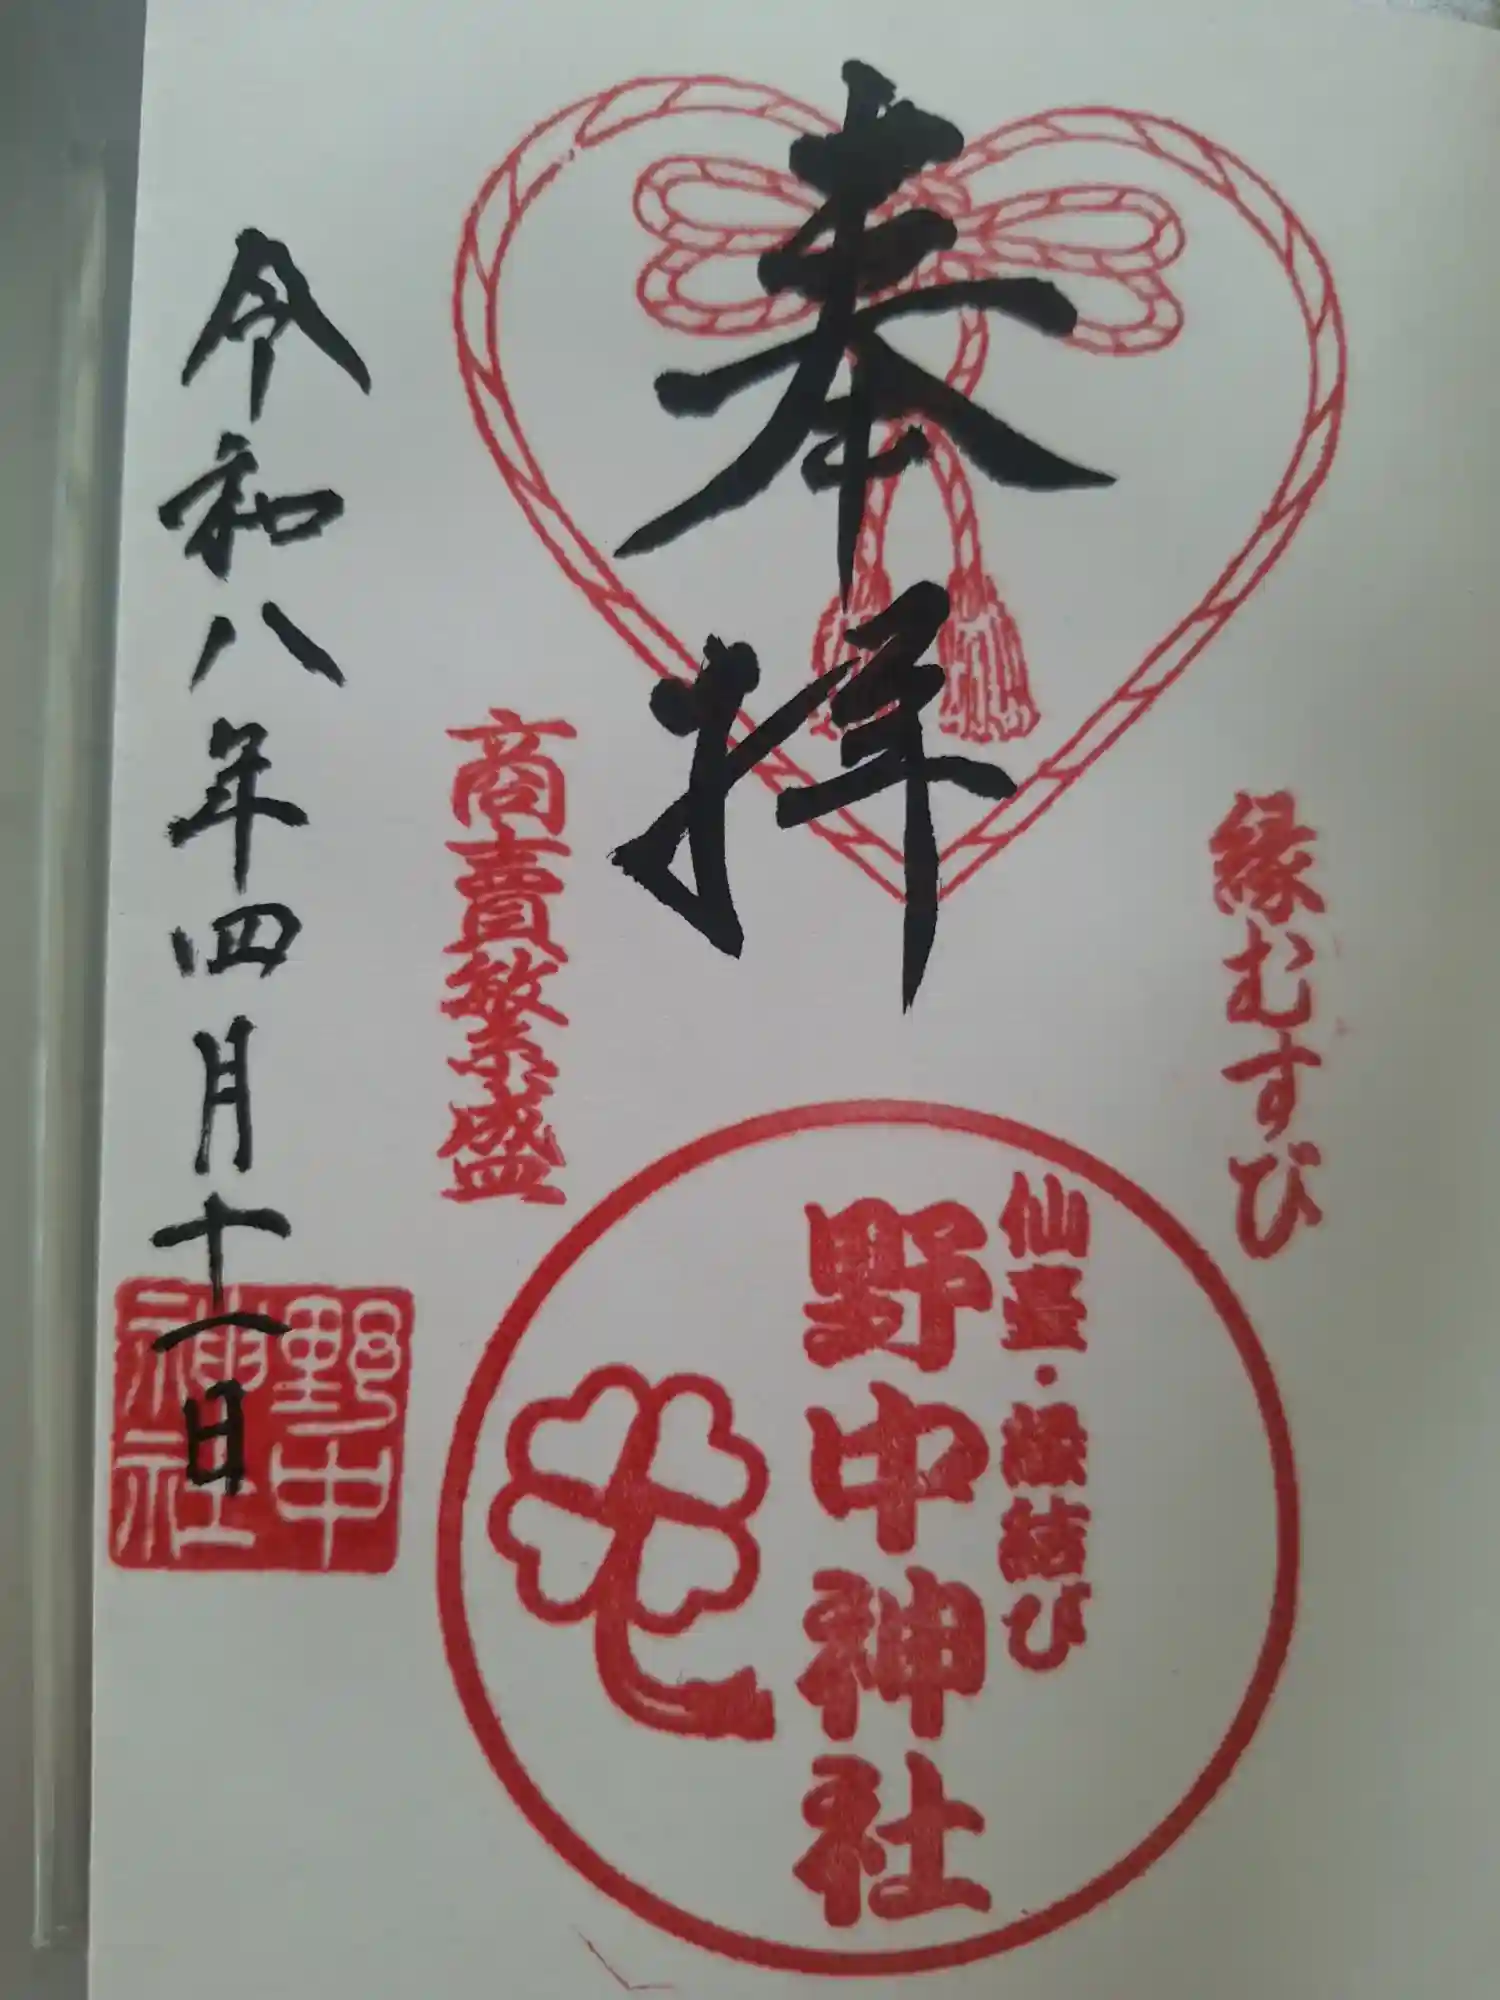 縁むすび
奉拝
商賣繁盛
仙臺・縁結び
野中神社
令和八年四月十一日
野中
神社